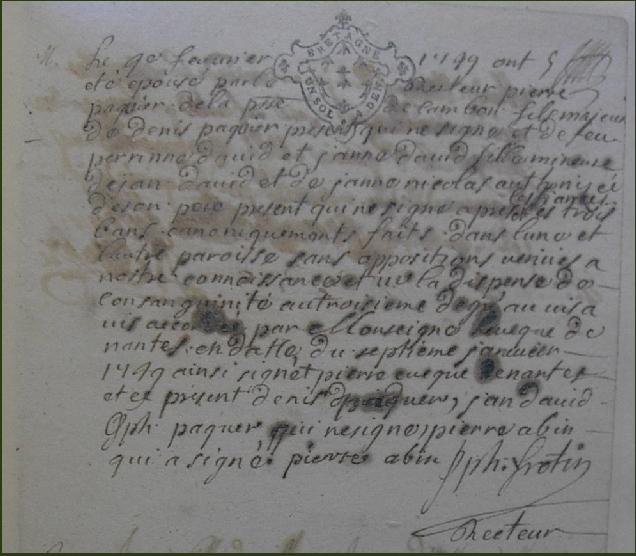 M. Le 9e fanvier 1749 ont
été epousé par le Recteur pierre
paquer de la pse de Cambon fils majeur
de denis paquer present qui ne signe et de feu
perrinne david et janne david fille mineure
de jan david et de janne nicolas authorisée
de son pere present qui ne signe apres les trois
bans canoniquements faits dans lune et
lautre paroisse sans oppositions venües a
nostre connoissance et vu la dispense de
Consanguinité au troisieme degré
accordée par Monseigneur leveque de
nantes en datte du septieme janvier
1749 ainsi signé pierre eveque de nantes
et ce présent denis paquer, jan david
Jph: paquer qui ne signe, pierre abin
qui a signé. pierre abin Jph: Gretin
Recteur
BRETAGNE
UN SOL
DEN